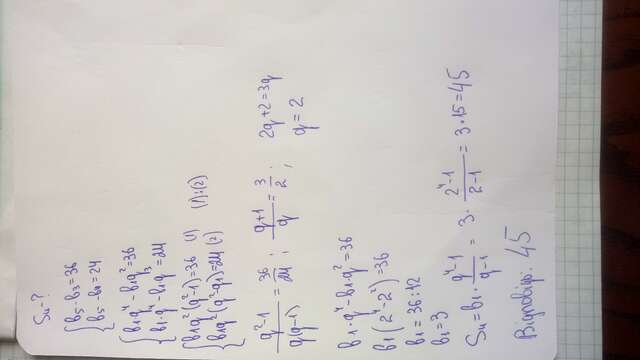 S₄ - ?
{ b₅ - b₃ = 36
{ b₅ - b₄ = 24
{ b₁q⁴ - b₁q² = 36
{ b₁·q⁴ - b₁q³ = 24
{ b₁q²(q²-1) = 36 (1)
{ b₁q²(q²-q) = 24 (2) (1):(2)
(q²-1)/(q(q-1)) = 36/24 ; (q+1)/q = 3/2 ; 2q+2=3q
q = 2
b₁·q⁴ - b₁q² = 36
b₁(2⁴-2²) = 36
b₁ = 36:12
b₁ = 3
S₄ = b₁ · (q⁴-1)/(q-1) = 3 · (2⁴-1)/(2-1) = 3·15 = 45
Відповідь: 45